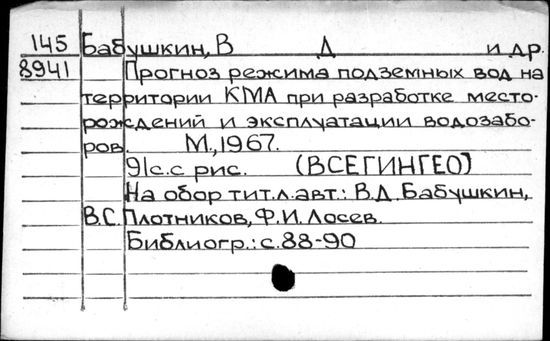 145 Бабушкин, В Д и др.
8941 Прогноз режима подземных вод на
территории КМА при разработке место-
рождений и эксплуатации водозабо-
ров. М., 1967.
91с. с рис. (ВСЕГИНГЕО)
На обор тит.л. авт.: В.Д. Бабушкин,
В.С. Плотников, Ф.И. Лосев.
Библиогр.: с.88-90